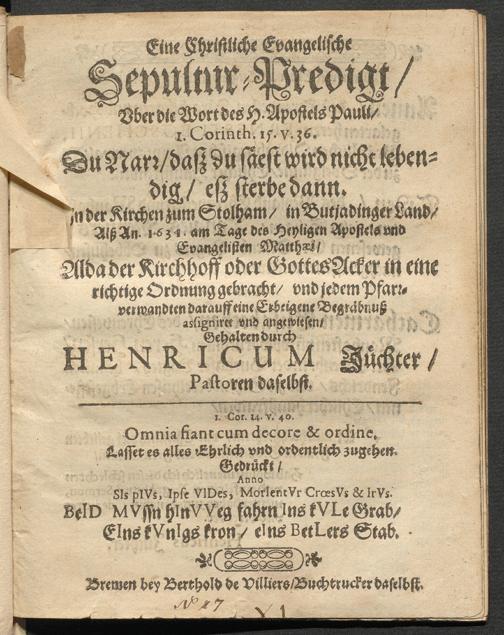 Eine Christliche Evangelische
Sepultur-Predigt/
Vber die Wort des H. Apostels Pauli/
1. Corinth. 15. v. 36.
Du Narr/daß du säest wird nicht leben-
dig/ eß sterbe dann.
In der Kirchen zum Stolham/ in Butjadinger Land/
Alß An. 1631. am Tage des Heyligen Apostels und
Evangelisten Matthæi/
Alda der Kirchhoff oder Gottes Acker in eine
richtige Ordnung gebracht/ vnd jedem Pfar-
verwandten darauff eine Erbeigene Begräbnuß
assigniret vnd angewiesen/
Gehalten durch
HENRICUM Jüchter/
Pastoren daselbst.
1. Cor. 14. v. 40.
Omnia fiant cum decore & ordine.
Lasset es alles Ehrlich vnd ordentlich zugehen.
Gedrückt/
Anno
SIs pIVs, Ipse VIDes, MorIentVr CrœsVs & IrVs.
BeID MVssn hInVVeg fahrn Ins kVLe Grab/
EIns kVnIgs kron/ eIns BetLers Stab.
Bremen bey Berthold de Villiers/Buchtrucker daselbst.
No 27